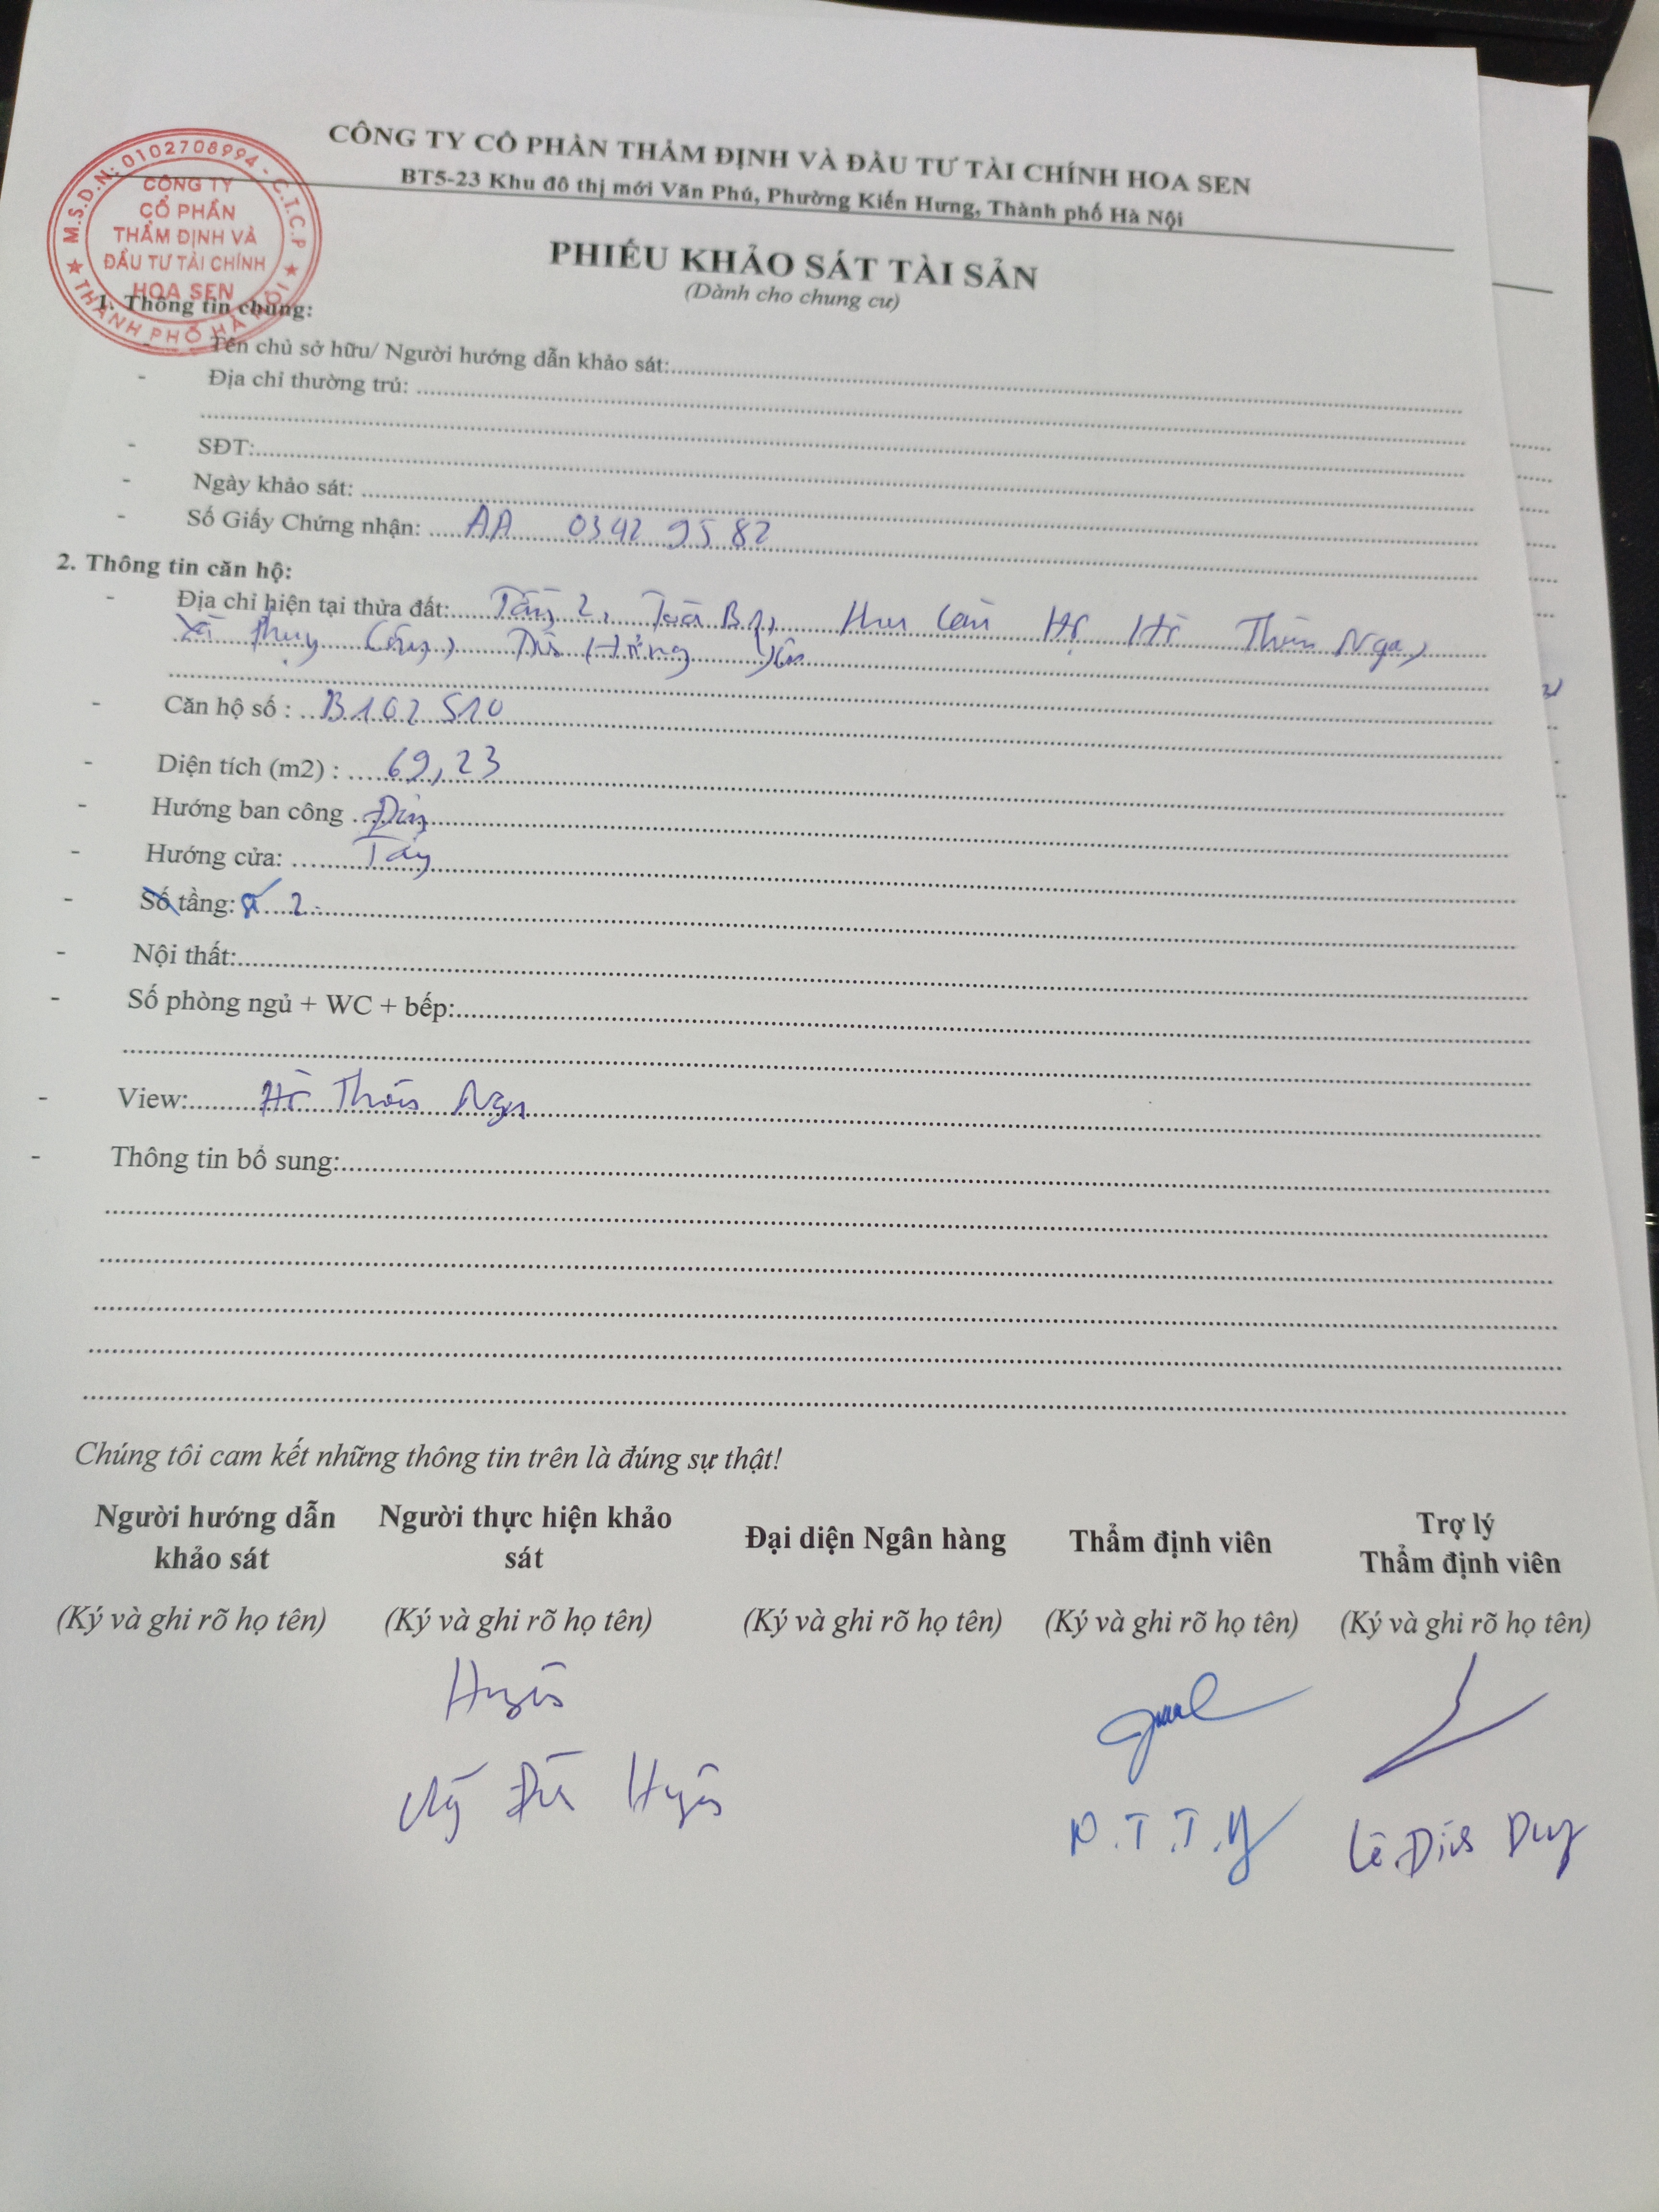 CÔNG TY CỔ PHẦN THẨM ĐỊNH VÀ ĐẦU TƯ TÀI CHÍNH HOA SEN
BT5-23 Khu đô thị mới Văn Phú, Phường Kiến Hưng, Thành phố Hà Nội
M.S.D.N: 0102708994 - C.T.C.P
CÔNG TY
CỔ PHẦN
THẨM ĐỊNH VÀ
ĐẦU TƯ TÀI CHÍNH
HOA SEN
THÀNH PHỐ HÀ NỘI
PHIẾU KHẢO SÁT TÀI SẢN
(Dành cho chung cư)
1. Thông tin chung:
- Tên chủ sở hữu/ Người hướng dẫn khảo sát:
- Địa chỉ thường trú:
- SĐT:
- Ngày khảo sát:
- Số Giấy Chứng nhận: AA 03429582
2. Thông tin căn hộ:
- Địa chỉ hiện tại thửa đất: Tầng 2, Toà B1, Khu căn Hộ Hồ Thiên Nga,
Xã Phụng Công, Hưng Yên
- Căn hộ số : B102S10
- Diện tích (m2) : 69,23
- Hướng ban công Đông
- Hướng cửa: Tây
- Số tầng: 2
- Nội thất:
- Số phòng ngủ + WC + bếp:
- View: Hồ Thiên Nga
- Thông tin bổ sung:
Chúng tôi cam kết những thông tin trên là đúng sự thật!
Người hướng dẫn khảo sát
Người thực hiện khảo sát
Đại diện Ngân hàng
Thẩm định viên
Trợ lý Thẩm định viên
(Ký và ghi rõ họ tên) (Ký và ghi rõ họ tên) (Ký và ghi rõ họ tên) (Ký và ghi rõ họ tên) (Ký và ghi rõ họ tên)
N.T.T.
Lê Duy